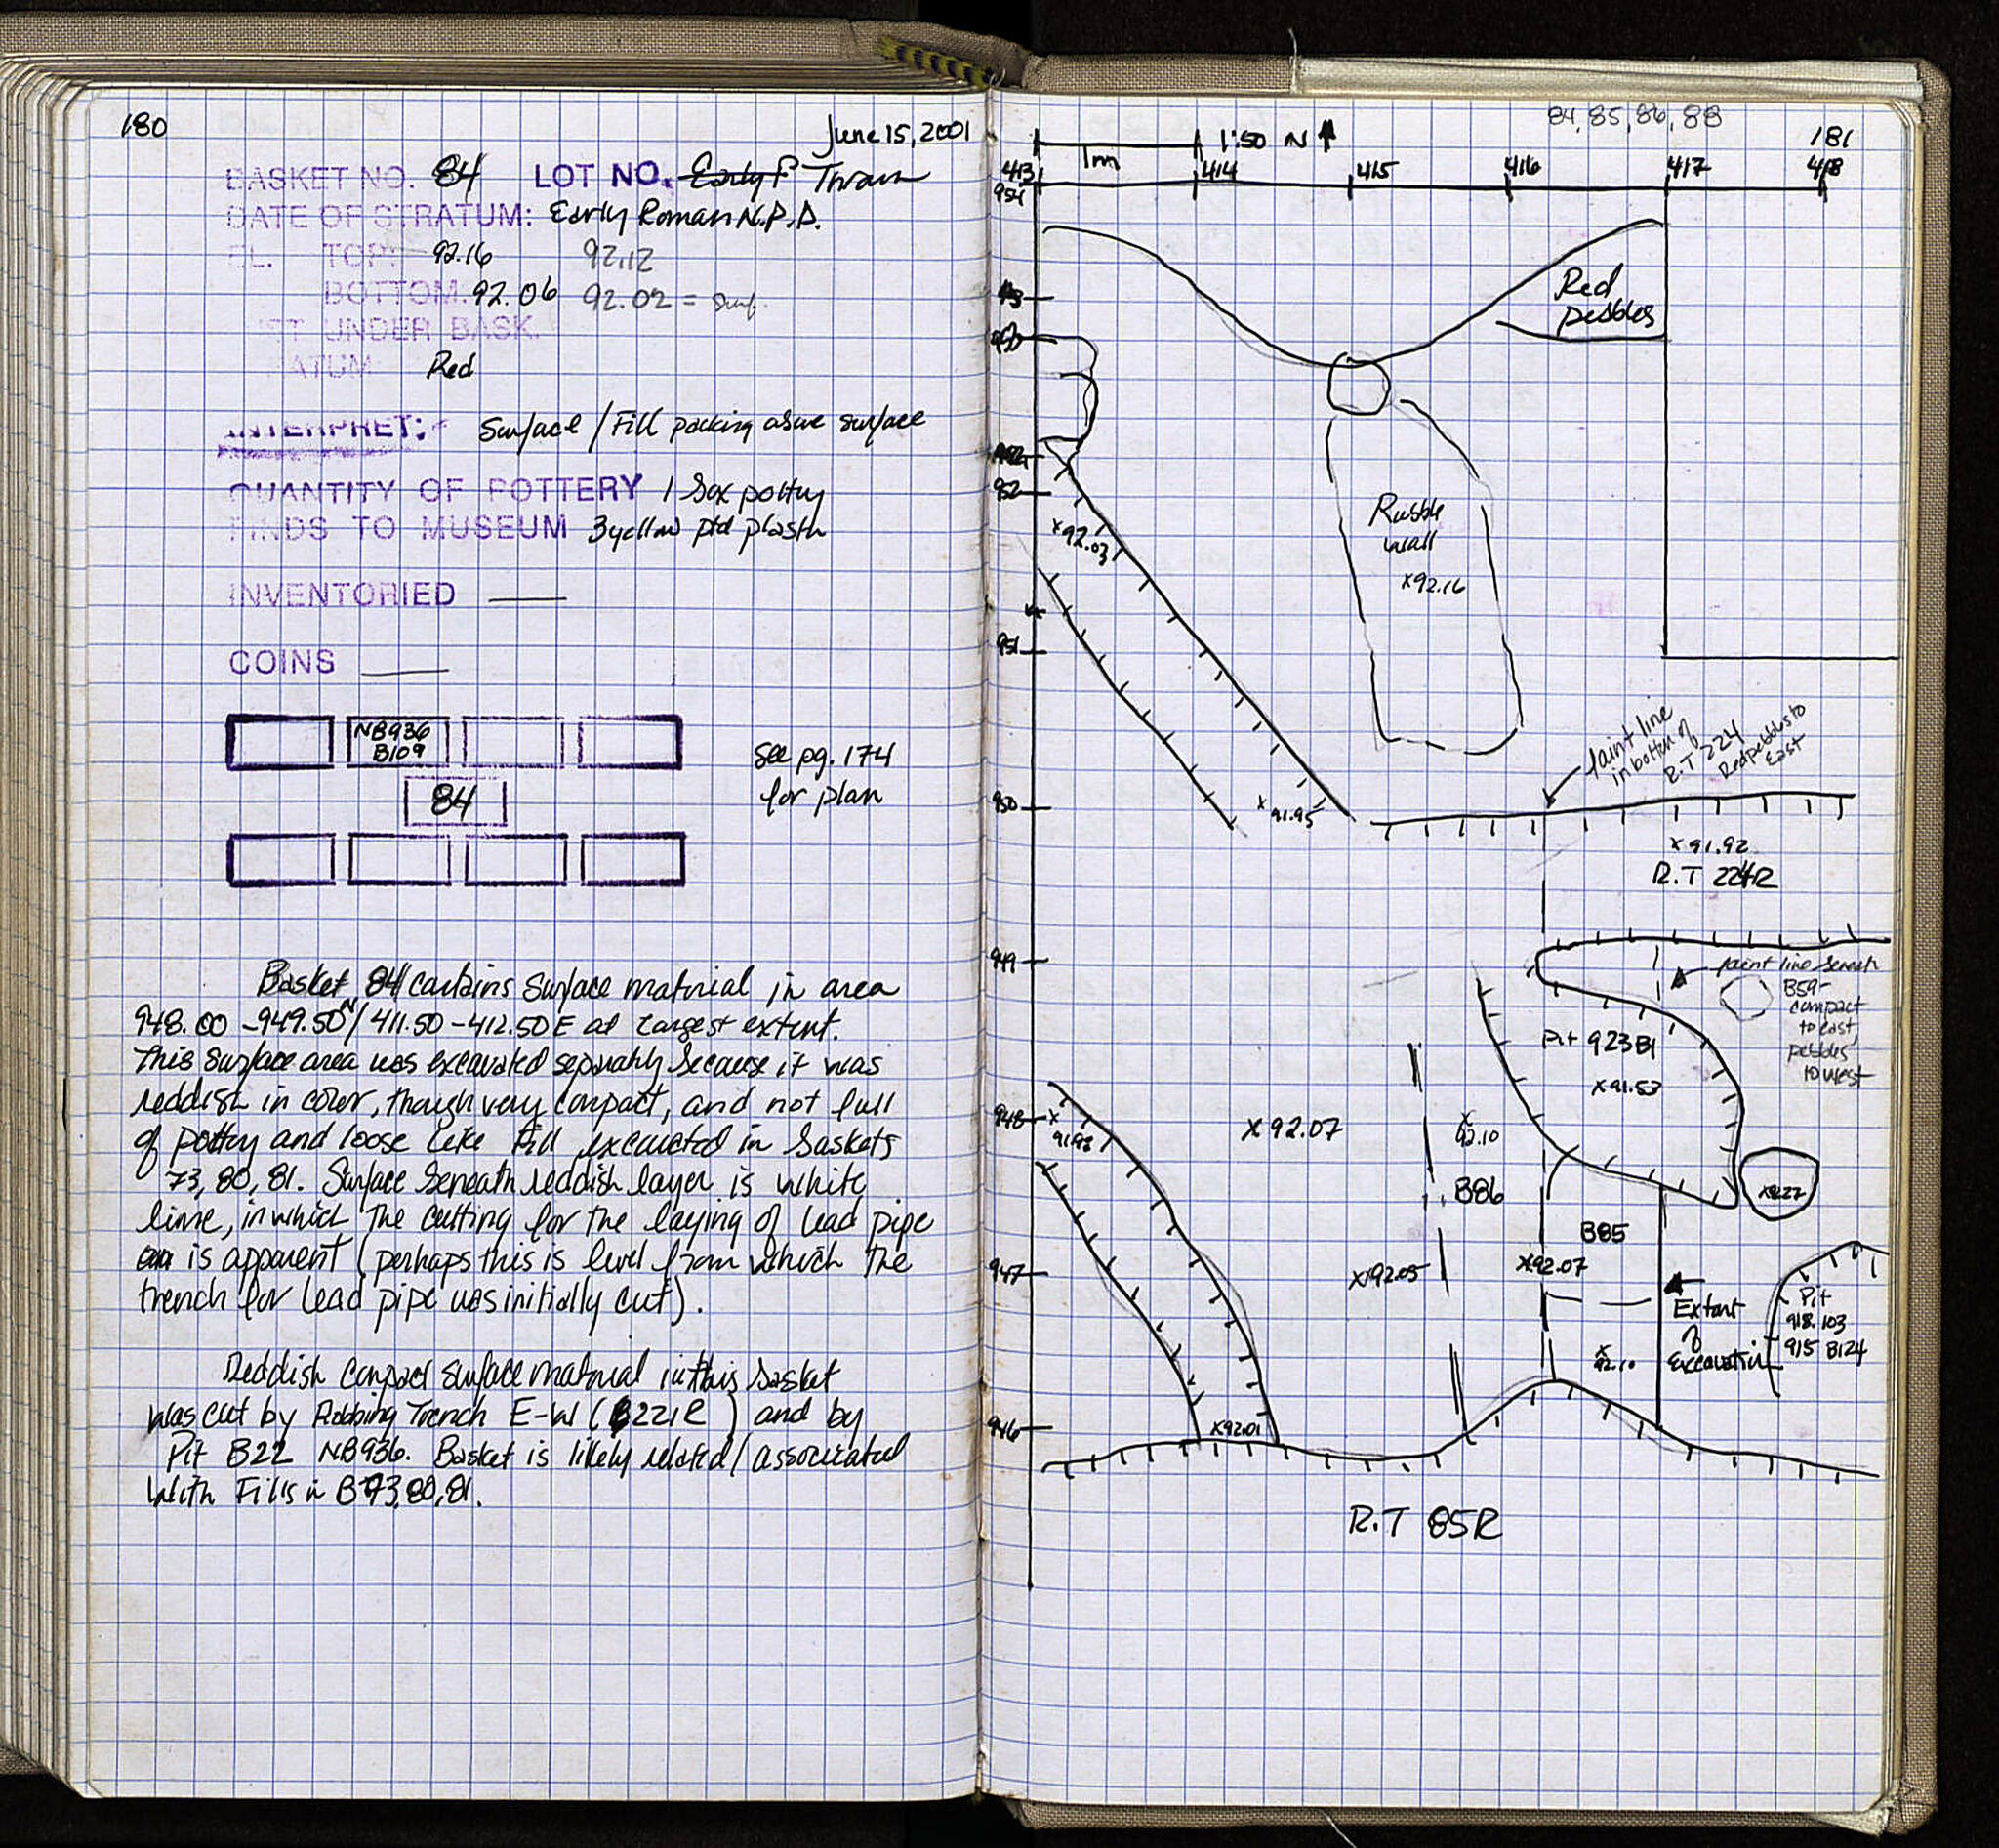 180
June 15, 2001
BASKET NO. 84 LOT NO. Early P Thrown
DATE OF STRATUM: Early Roman N.P.D.
EL. TOP: 92.16 92.12
BOTTOM: 92.06 92.02 = surf.
UNDER BASK.
Red
INTERPRET: Surface / Fill packing above surface
QUANTITY OF POTTERY 1 box pottery
FINDS TO MUSEUM 3 yellow ptd plaster
INVENTORIED —
COINS —
NB936
B109
84
See pg. 174
for plan
Basket 84 contains surface material in area
948.00 - 949.50 N / 411.50 - 412.50 E at largest extent.
This surface area was excavated separately because it was
reddish in color, though very compact, and not full
of pottery and loose like fill excavated in baskets
73, 80, 81. Surface beneath reddish layer is white
lime, in which the cutting for the laying of lead pipe
is apparent (perhaps this is level from which the
trench for lead pipe was initially cut).
Reddish compact surface material in this basket
was cut by Robbing Trench E-W (B221R) and by
Pit B22 NB936. Basket is likely related / associated
with Fills in B73, 80, 81.
84, 85, 86, 88
181
1m
1:50 N
413 414 415 416 417 418
954
Red
pebbles
952
Rubble
wall
x92.16
x92.03
951
faint line
in bottom of
R.T 224
Red pebbles to
East
950
x91.95
x91.92
R.T 224R
949
faint line beneath
B59-
compact
to east,
pebbles
to west
Pit 923 B1
x91.53
948
x92.07
x
92.10
B86
x92.22
B85
947
x92.05
x92.07
Extent
of
Excavation
Pit
918.103
915 B124
x
92.10
946
x92.01
R.T 85R